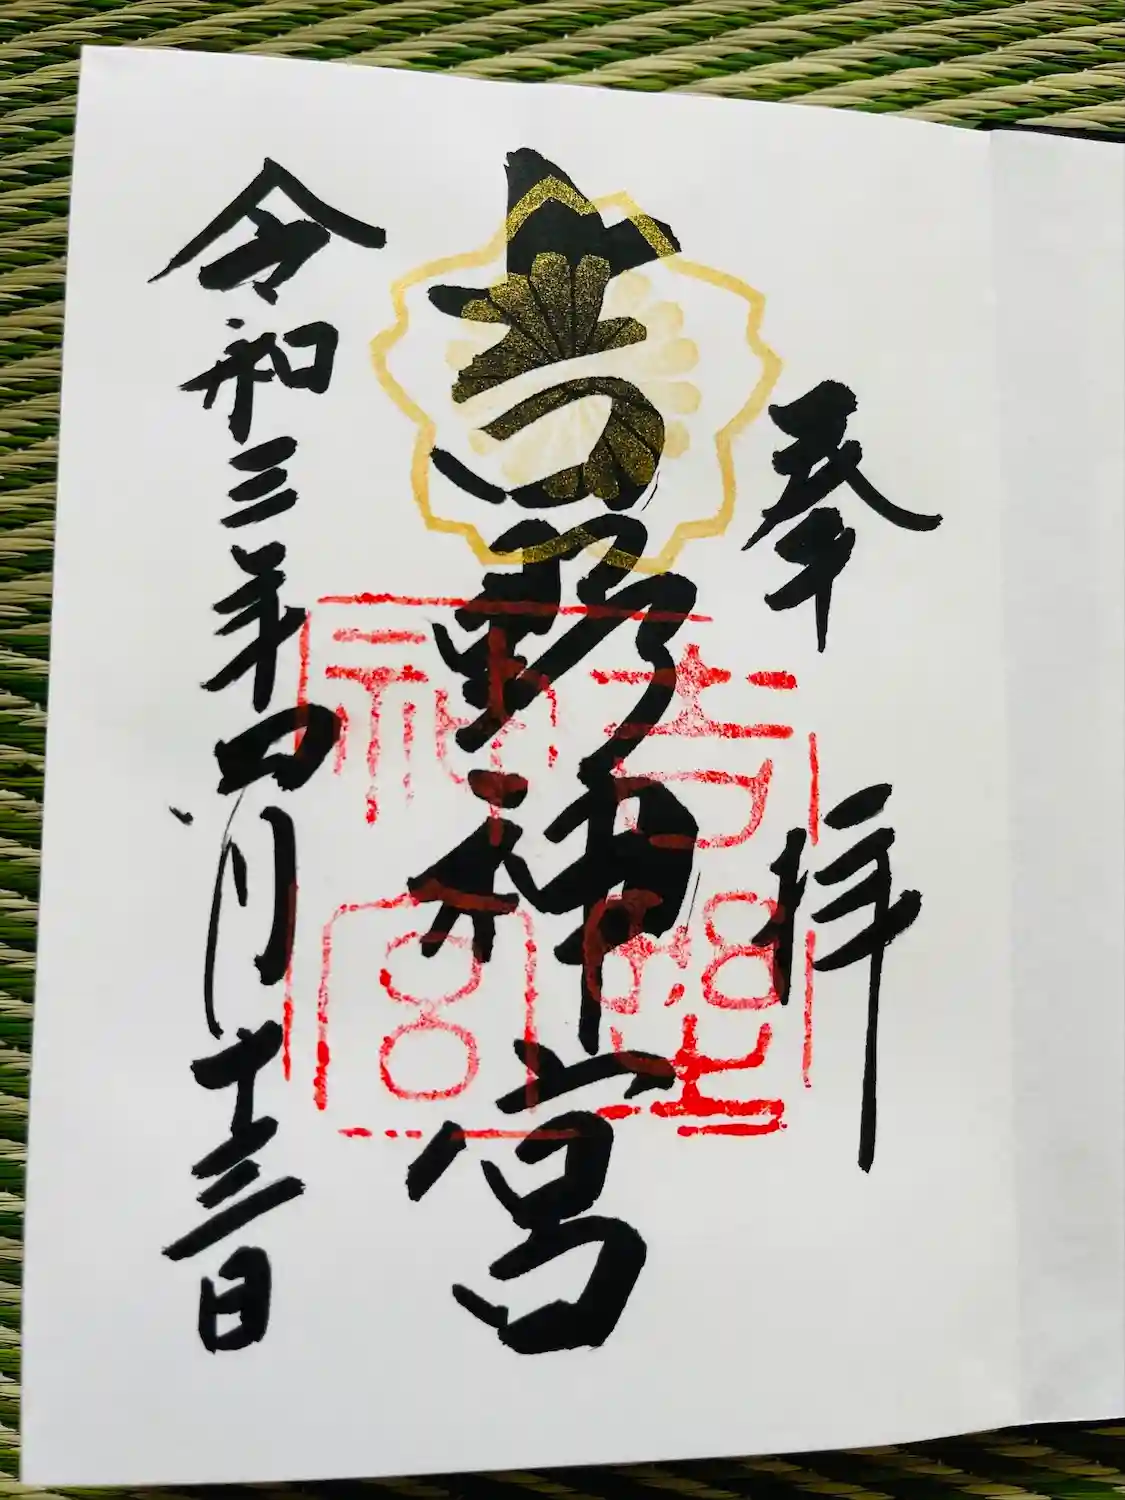 奉拝
吉野神宮
令和三年四月十三日
吉野
神宮